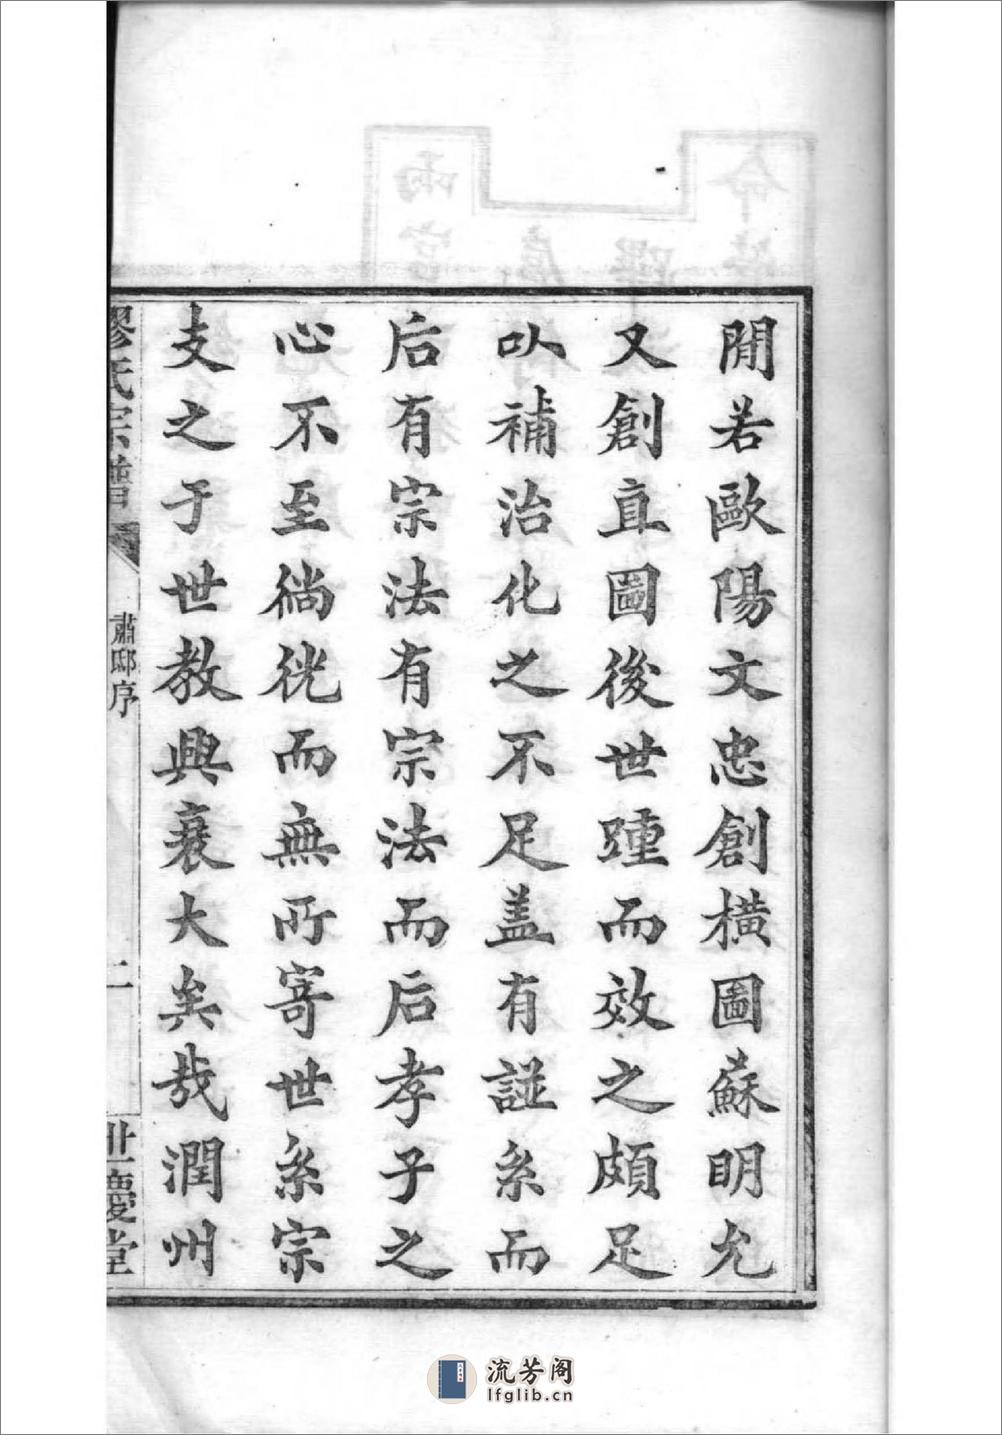 閒若歐陽文忠創橫圖蘇明允
又創直圖後世踵而效之頗足
以補治化之不足盖有諩系而
后有宗法有宗法而后孝子之
心不至徜徔而無所寄世系宗
支之于世教興衰大矣哉潤州
繆氏宗譜
肅邸序
二
世慶堂
流芳阁
lfglib.cn